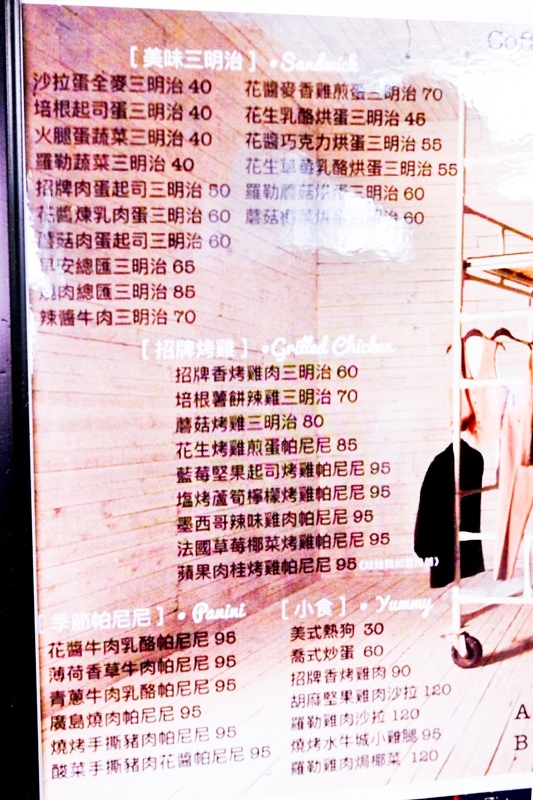 [ 美味三明治 ] • Sandwich
沙拉蛋全麥三明治 40
培根起司蛋三明治 40
火腿蛋蔬菜三明治 40
羅勒蔬菜三明治 40
招牌肉蛋起司三明治 50
花醬煉乳肉蛋三明治 60
蘑菇肉蛋起司三明治 60
早安總匯三明治 65
燒肉總匯三明治 85
辣醬牛肉三明治 70
花醬麥香雞煎蛋三明治 70
花生乳酪烘蛋三明治 45
花醬巧克力烘蛋三明治 55
花生草莓乳酪烘蛋三明治 55
羅勒蘑菇烘蛋三明治 60
60
[ 招牌烤雞 ] • Grilled Chicken
招牌香烤雞肉三明治 60
培根薯餅辣雞三明治 70
蘑菇烤雞三明治 80
花生烤雞煎蛋帕尼尼 85
藍莓堅果起司烤雞帕尼尼 95
塩烤蘆筍檸檬烤雞帕尼尼 95
墨西哥辣味雞肉帕尼尼 95
法國草莓椰菜烤雞帕尼尼 95
蘋果肉桂烤雞帕尼尼 95
[ 季節帕尼尼 ] • Panini
花醬牛肉乳酪帕尼尼 95
薄荷香草牛肉帕尼尼 95
青蔥牛肉乳酪帕尼尼 95
廣島燒肉帕尼尼 95
燒烤手撕豬肉帕尼尼 95
酸菜手撕豬肉花醬帕尼尼 95
[ 小食 ] • Yummy
美式熱狗 30
喬式炒蛋 60
招牌香烤雞肉 90
胡麻堅果雞肉沙拉 120
羅勒雞肉沙拉 120
燒烤水牛城小雞腿 95
羅勒雞肉焗椰菜 120
A
B